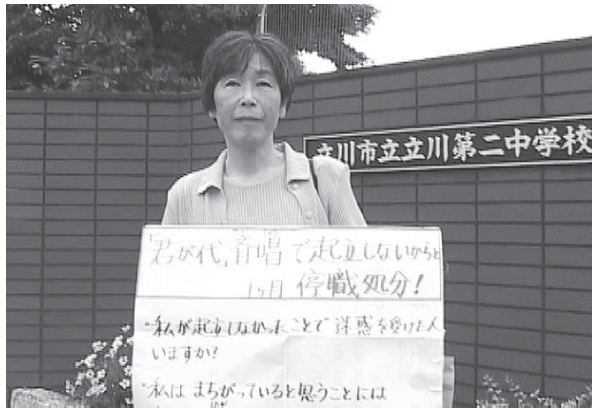 立川市立立川第二中学校
「君が代」斉唱で起立しないからと
1ヶ月 停職処分!
・私が起立しなかったことで 迷惑を受けた人
いますか?
・私は まちがっていると思うことには